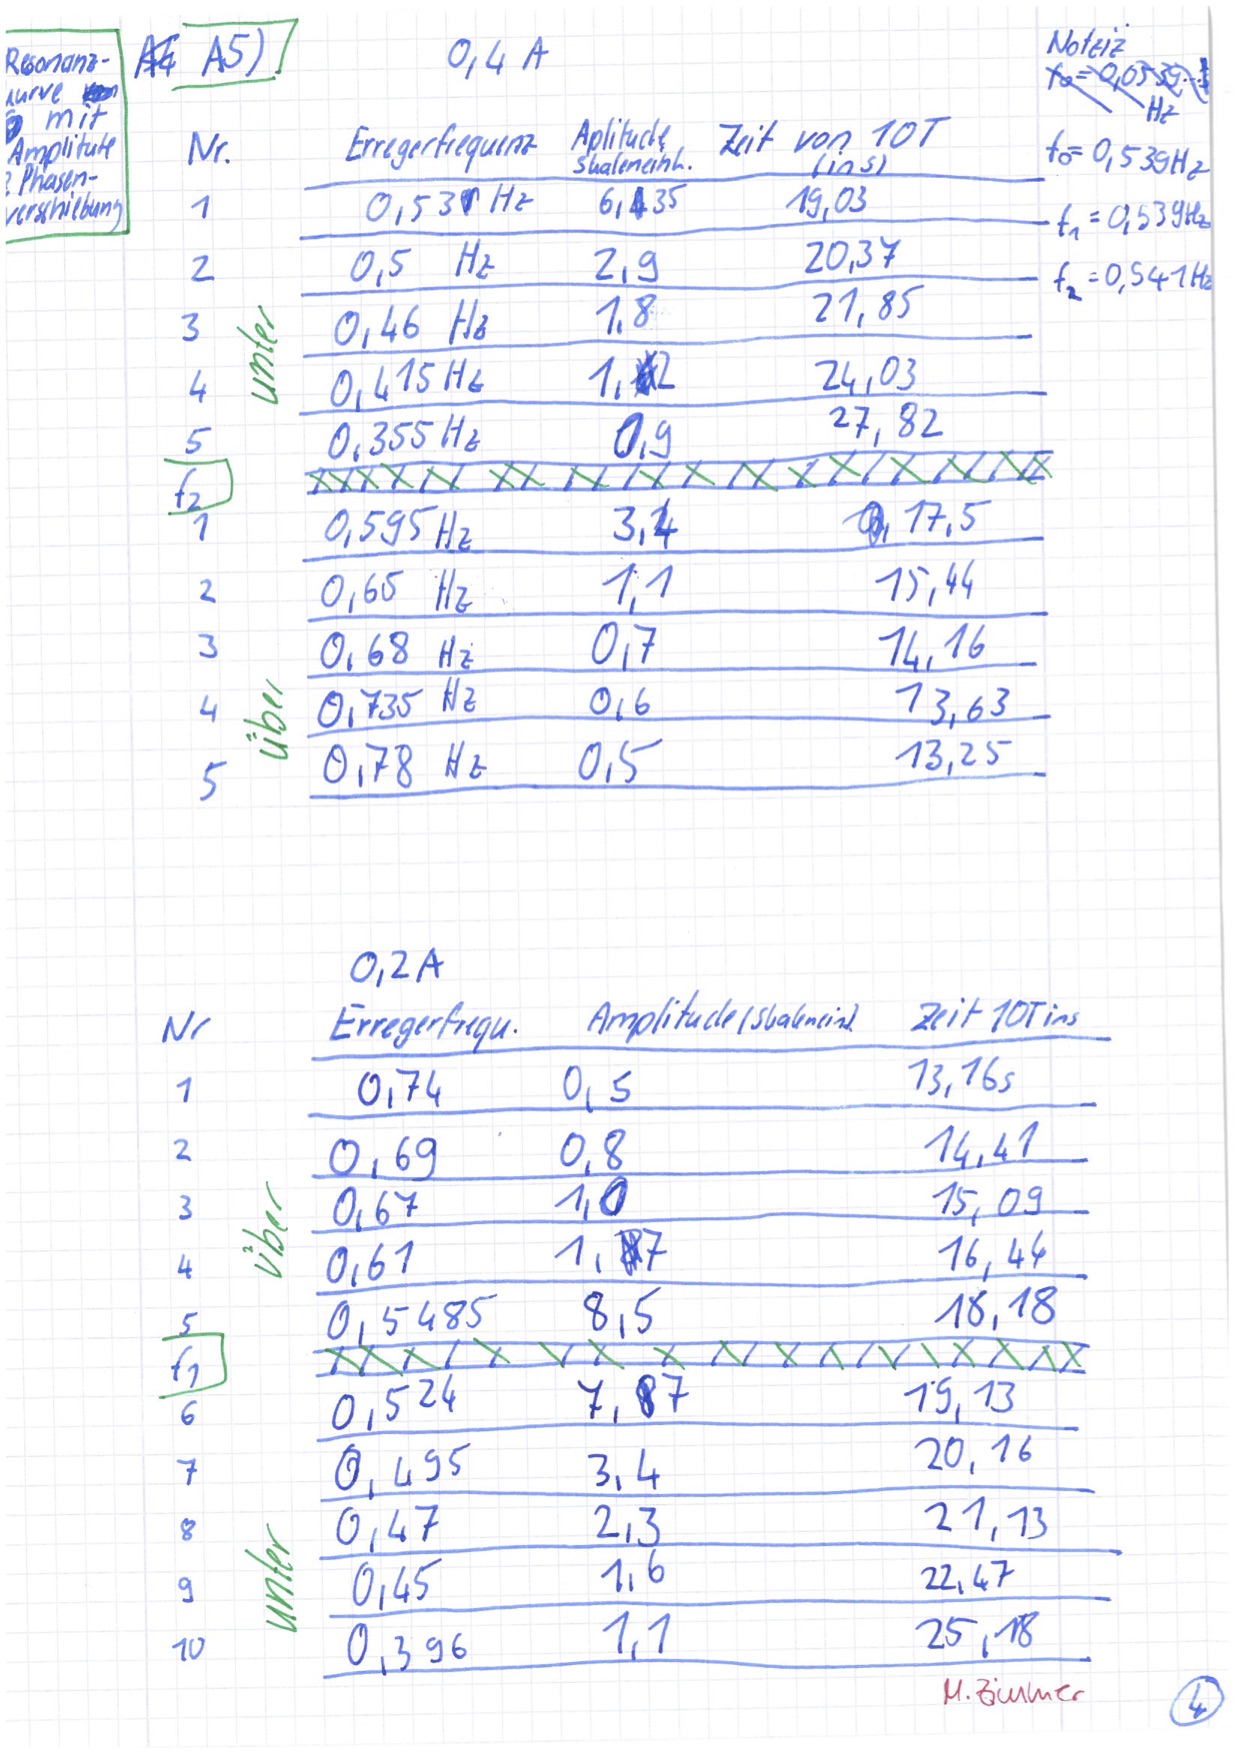 A5) 0,4 A
Resonanz-
kurve
mit
Amplitute
& Phasen-
verschiebung
Notiz
f₀ = 0,0539 Hz
f₀ = 0,539 Hz
f₁ = 0,539 Hz
f₂ = 0,541 Hz
Nr. Erregerfrequenz Aplitude Skaleneinh. Zeit von 10T (in s)
1 0,531 Hz 6,35 19,03
2 0,5 Hz 2,9 20,37
3 0,46 Hz 1,8 21,85
unter
4 0,415 Hz 1,2 24,03
5 0,355 Hz 0,9 27,82
f₂
1 0,595 Hz 17,5
2 0,65 Hz 1,1 15,44
3 0,68 Hz 0,7 14,16
über
4 0,735 Hz 0,6 13,63
5 0,78 Hz 0,5 13,25
0,2 A
Nr Erregerfrequ. Amplitude (Skalenein) Zeit 10T in s
1 0,74 0,5 13,16s
2 0,69 0,8 14,41
3 0,67 1,0 15,09
über
4 0,61 1,7 16,44
5 0,5485 8,5 18,18
f₁
6 0,524 7,7 19,13
7 0,495 3,4 20,16
8 0,47 2,3 21,13
unter
9 0,45 1,6 22,47
10 0,396 1,1 25,18
M. Zimmer
4